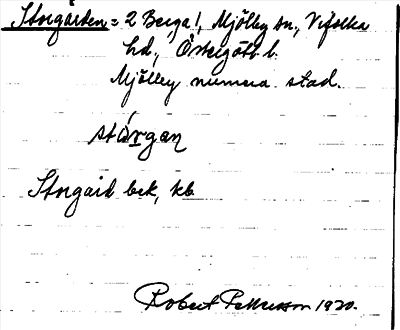 Storgården = 2 Berga!, Mjölby sn, Vifolka
hd, Östergötl l.
Mjölby numera stad.
stårgan
Storgård bek, kb
Robert Pettersson 1920.